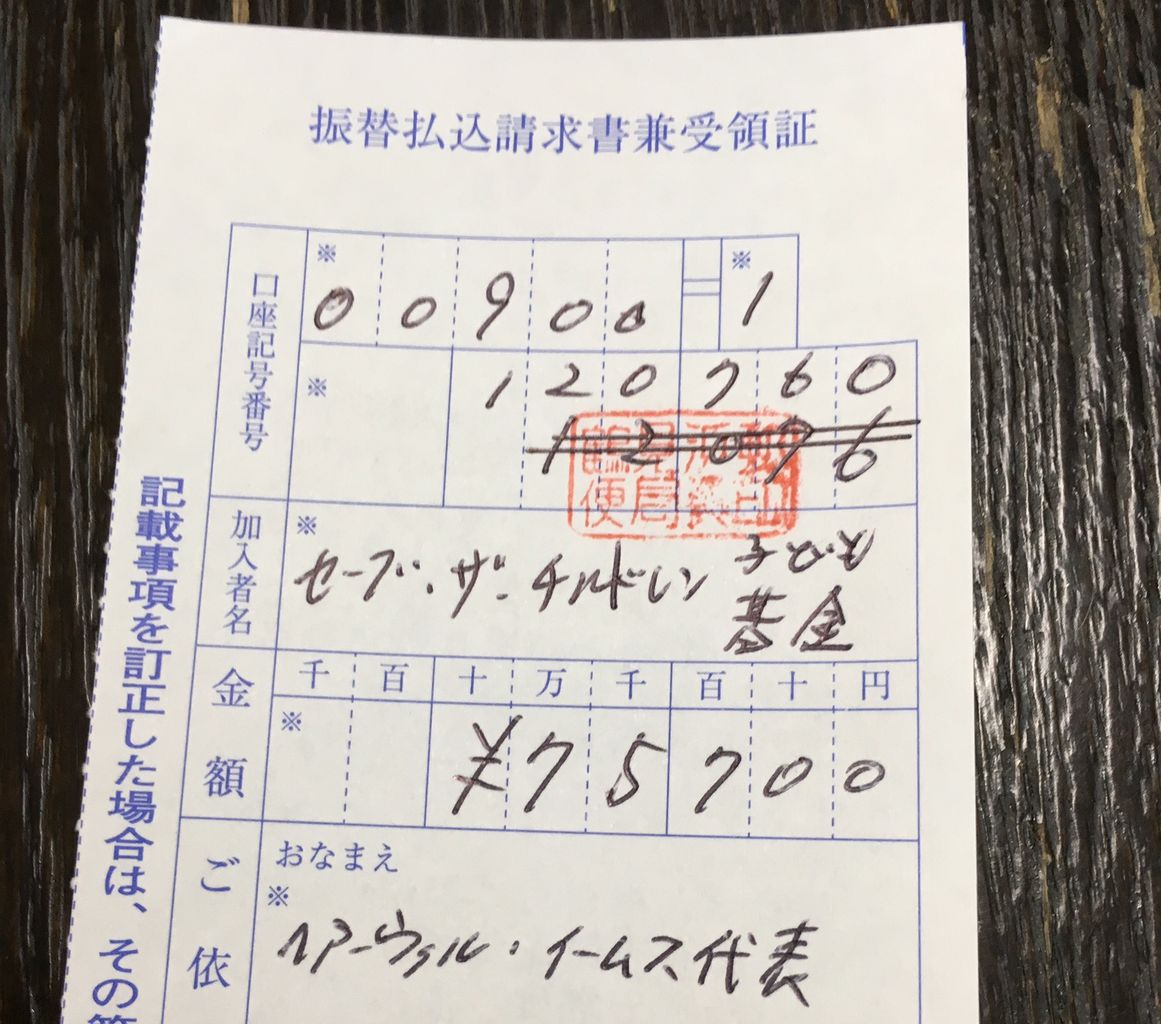 振替払込請求書兼受領証
口座記号番号
※ ※
0 0 9 0 0 = 1
※ 1 2 0 7 6 0
1 2 0 7 6
加入者名
※
セーブ・ザ・チルドレン 子ども
基金
金額
千 百 十 万 千 百 十 円
※ ¥ 7 5 7 0 0
ご依
おなまえ
※
ヘアーヴァル・イームス代表
記載事項を訂正した場合は、その